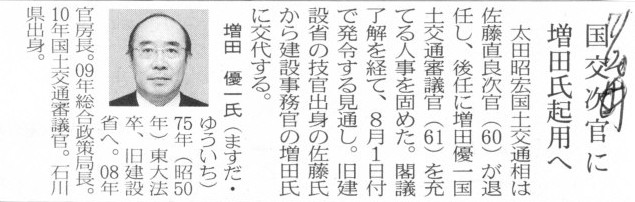 国交次官に
増田氏起用へ
太田昭宏国土交通相は
佐藤直良次官(60)が退
任し、後任に増田優一国
土交通審議官(61)を充
てる人事を固めた。閣議
了解を経て、8月1日付
で発令する見通し。旧建
設省の技官出身の佐藤氏
から建設事務官の増田氏
に交代する。
増田 優一氏(ますだ・
ゆういち)
75年(昭50
年)東大法
卒、旧建設
省へ。08年
官房長。09年総合政策局長。
10年国土交通審議官。石川
県出身。